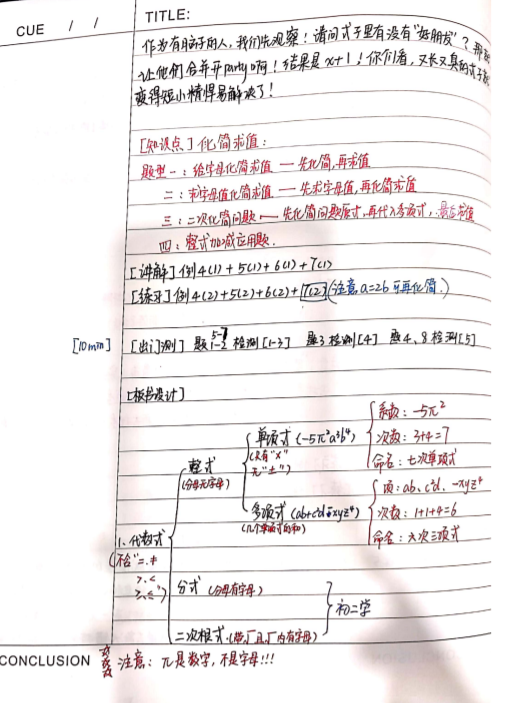 CUE / /
TITLE:
作为有脑子的人,我们先观察!请问式子里有没有"好朋友"?那就
让他们合并开party啊!结果是x+1!你们看,又长又臭的式子就
变得短小精悍易解决了!
[知识点] 化简求值:
题型一:给字母化简求值 — 先化简,再求值
二:求字母值化简求值 — 先求字母值,再化简求值
三:二次化简问题 — 先化简问题原式,再代入多项式,最后求值
四:整式加减应用题.
[讲解] 例4(1)+5(1)+6(1)+7(1)
[练习] 例4(2)+5(2)+6(2)+7(2)(注意a=2b可再化简.)
[10min]
[出门测] 题1-2 检测[1-3] 题3检测[4] 题4、8检测[5]
5-7
[板书设计]
1、代数式
(不含"=、≠
>、<
≥、≤")
整式
(分母无字母)
单项式(-5π²a³b⁴)
(只有"×"
无"±")
系数:-5π²
次数:3+4=7
命名:七次单项式
多项式(ab+c²d-xyz⁴)
(几个单项式的和)
项:ab、c²d、-xyz⁴
次数:1+1+4=6
命名:六次三项式
分式(分母有字母)
二次根式(带√且√内有字母)
初二学
CONCLUSION
注意:π是数字,不是字母!!!